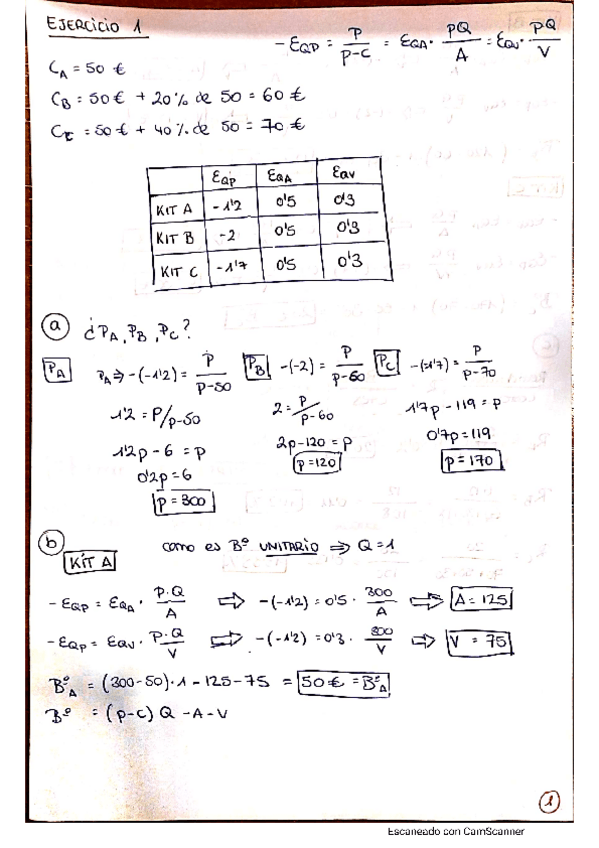 EJERCICIO 1
-EQP = P / P-C = EQA · PQ / A = EQV · PQ / V
CA = 50 €
CB = 50€ + 20% de 50 = 60 €
CC = 50€ + 40% de 50 = 70€
EQP EQA EQV
KIT A -1'2 0'5 0'3
KIT B -2 0'5 0'3
KIT C -1'7 0'5 0'3
a ¿PA, PB, PC?
PA PA ⇒ -(-1'2) = P / P-50
1'2 = P/P-50
1'2p - 6 = P
0'2p = 6
p = 300
PB -(-2) = P / P-60
2 = P / P-60
2p - 120 = P
p = 120
PC -(-1'7) = P / P-70
1'7p - 119 = P
0'7p = 119
p = 170
b como es Bº UNITARIO ⇒ Q = 1
KIT A
-EQP = EQA · P·Q / A ⇒ -(-1'2) = 0'5 · 300 / A ⇒ A = 125
-EQP = EQV · P·Q / V ⇒ -(-1'2) = 0'3 · 300 / V ⇒ V = 75
BºA = (300-50)·1 - 125 - 75 = 50€ = BºA
Bº = (p-c) Q - A - V
1
Escaneado con CamScanner